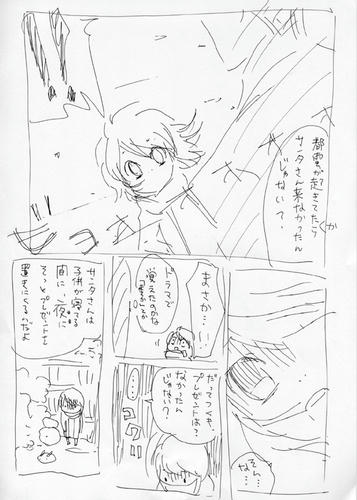 !!
都雲が起きてたら
サンタさん来なかったん
じゃない?
まさか…!
ドラマで
覚えたのかな
そん…
な…
だってつくも、
プレゼントは?
なかったん
じゃない?
……
コクリ
サンタさんは
子供が寝てる
間に、夜に
そっとプレゼントを
置きにくるんだよ